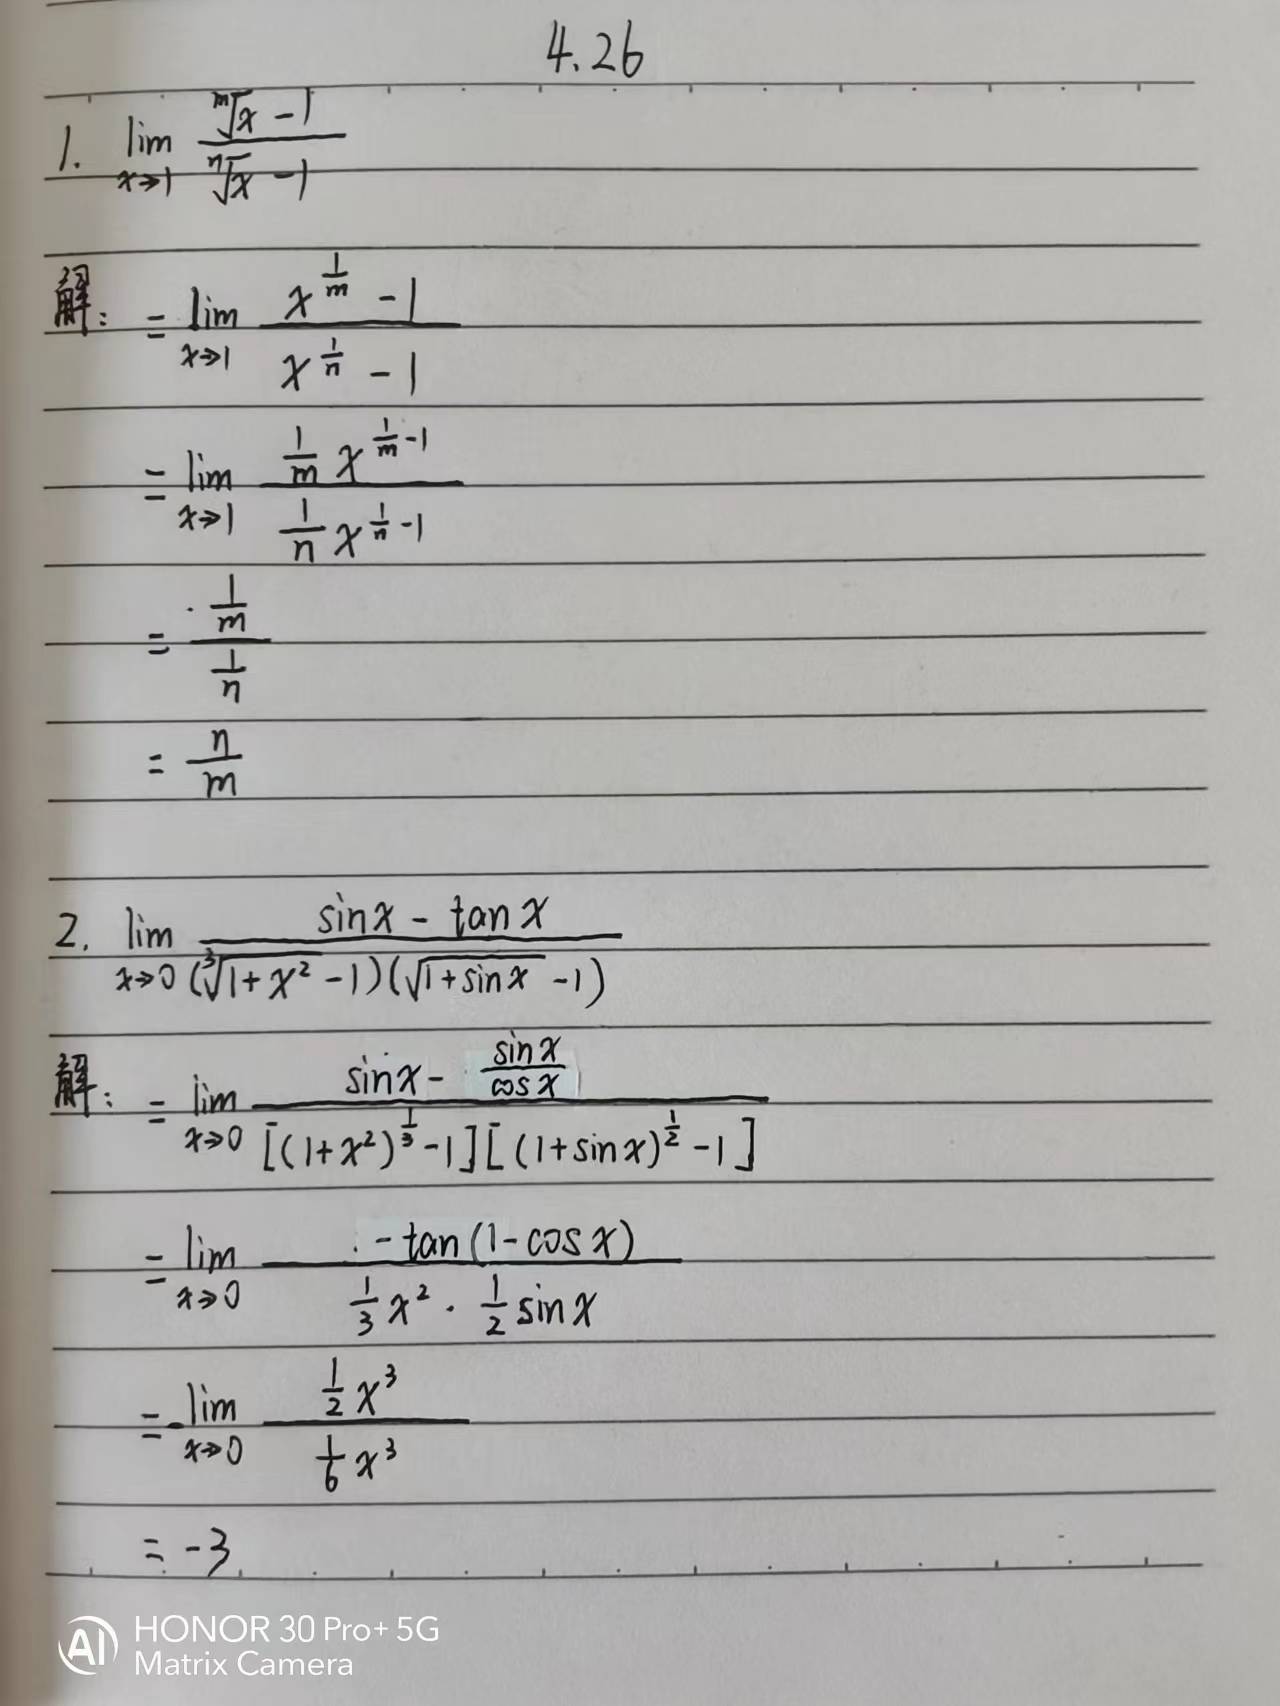 4.26
1. lim_{x→1} \frac{\sqrt[m]{x} - 1}{\sqrt[n]{x} - 1}
解: = lim_{x→1} \frac{x^{\frac{1}{m}} - 1}{x^{\frac{1}{n}} - 1}
= lim_{x→1} \frac{\frac{1}{m} x^{\frac{1}{m} - 1}}{\frac{1}{n} x^{\frac{1}{n} - 1}}
= \frac{\frac{1}{m}}{\frac{1}{n}}
= \frac{n}{m}
2. lim_{x→0} \frac{sinx - tanx}{(\sqrt[3]{1+x^2} - 1)(\sqrt{1+sinx} - 1)}
解: = lim_{x→0} \frac{sinx - \frac{sinx}{cosx}}{[(1+x^2)^{\frac{1}{3}} - 1][(1+sinx)^{\frac{1}{2}} - 1]}
= lim_{x→0} \frac{-tan(1-cosx)}{\frac{1}{3}x^2 · \frac{1}{2}sinx}
= -lim_{x→0} \frac{\frac{1}{2}x^3}{\frac{1}{6}x^3}
= -3
AI HONOR 30 Pro+ 5G
Matrix Camera